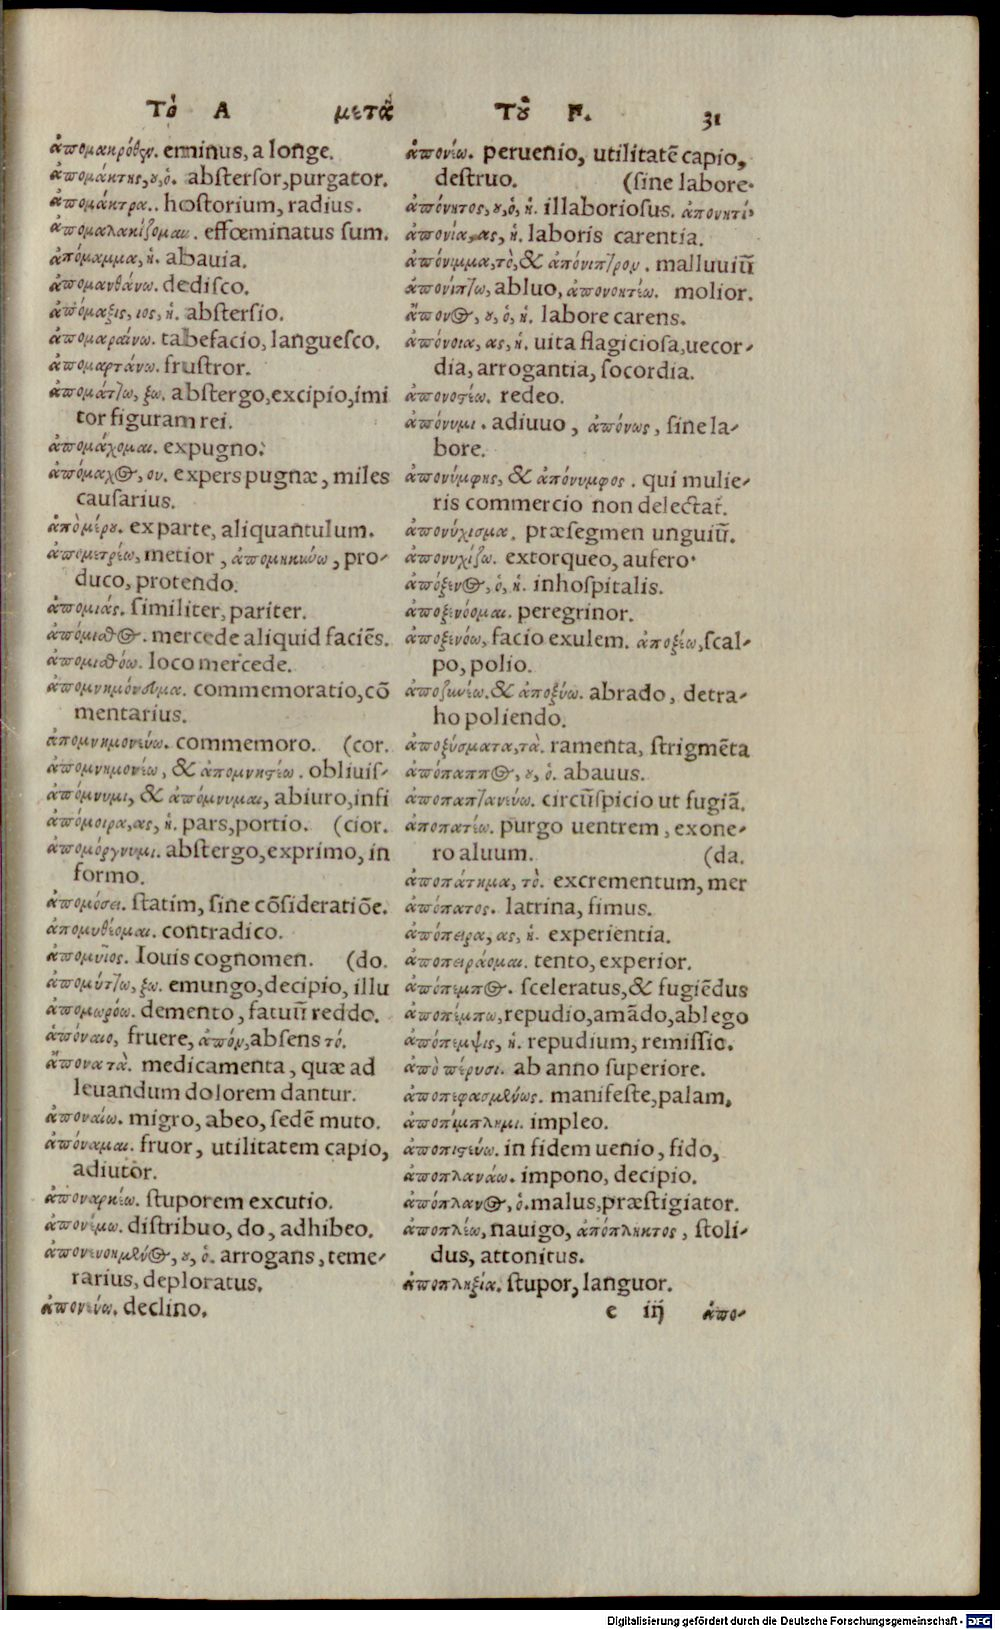 Τὸ Α μετὰ Τοῦ Π. 31
ἀπομακρόθεν. eminus, a longe.
ἀπομάκτης, ου, ὁ. abstersor, purgator.
ἀπομάκτρα.. hostorium, radius.
ἀπομαλακίζομαι. effœminatus sum.
ἀπόμαμμα, ἡ. abauia.
ἀπομανθάνω. dedisco.
ἀπόμαξις, ιος, ἡ. abstersio.
ἀπομαραίνω. tabefacio, languesco.
ἀπομαρτάνω. frustror.
ἀπομάττω, ξω. abstergo, excipio, imi
tor figuram rei.
ἀπομάχομαι. expugno.
ἀπόμαχος, ου. expers pugnæ, miles
causarius.
ἀπὸμέρου. ex parte, aliquantulum.
ἀπομετρέω, metior, ἀπομηκύνω, pro-
duco, protendo.
ἀπομιᾶς. similiter, pariter.
ἀπόμισθος. mercede aliquid faciēs.
ἀπομισθόω. loco mercede.
ἀπομνημόνευμα. commemoratio, cō
mentarius.
ἀπομνημονεύω. commemoro. (cor.
ἀπομνημονέω, & ἀπομνηστέω. obliuis-
ἀπόμνυμι, & ἀπόμνυμαι, abiuro, infi
ἀπόμοιρα, ας, ἡ. pars, portio. (cior.
ἀπομόργνυμι. abstergo, exprimo, in
formo.
ἀπομόσει. statim, sine cōsideratiōe.
ἀπομυθέομαι. contradico.
ἀπομυῖος. Iouis cognomen. (do.
ἀπομύττω, ξω. emungo, decipio, illu
ἀπομωρόω. demento, fatuū reddo.
ἀπόναιο, fruere, ἀπόν, absens τό.
ἄπονα τὰ. medicamenta, quæ ad
leuandum dolorem dantur.
ἀποναίω. migro, abeo, sedē muto.
ἀπόναμαι. fruor, utilitatem capio,
adiutor.
ἀποναρκέω. stuporem excutio.
ἀπονέμω. distribuo, do, adhibeo.
ἀπονενοημένος, ου, ὁ. arrogans, teme-
rarius, deploratus.
ἀπονεύω. declino.
ἀπονέω. peruenio, utilitatē capio,
destruo. (sine labore.
ἀπόνητος, ου, ὁ, ἡ. illaboriosus. ἀπονητί,
ἀπονία, ας, ἡ. laboris carentia.
ἀπόνιμμα, τὸ, & ἀπόνιπτρον. malluuiū
ἀπονίπτω, abluo, ἀπονοητέω. molior.
ἄπονος, ου, ὁ, ἡ. labore carens.
ἀπόνοια, ας, ἡ. uita flagiciosa, uecor-
dia, arrogantia, socordia.
ἀπονοστέω. redeo.
ἀπόνυμι. adiuuo, ἀπόνως, sine la-
bore.
ἀπονύμφης, & ἀπόνυμφος. qui mulie-
ris commercio non delectat̄.
ἀπονύχισμα. præsegmen unguiū.
ἀπονυχίζω. extorqueo, aufero.
ἀπόξενος, ὁ, ἡ. inhospitalis.
ἀποξενόομαι. peregrinor.
ἀποξενόω, facio exulem. ἀποξέω, scal-
po, polio.
ἀποξυνέω. & ἀποξύω. abrado, detra-
ho poliendo.
ἀποξύσματα, τὰ. ramenta, strigmēta
ἀπόπαππος, ου, ὁ. abauus.
ἀποπαπτανεύω. circūspicio ut fugiā.
ἀποπατέω. purgo uentrem, exone-
ro aluum. (da.
ἀποπάτημα, τὸ. excrementum, mer
ἀπόπατος. latrina, fimus.
ἀπόπειρα, ας, ἡ. experientia.
ἀποπειράομαι. tento, experior.
ἀπόπεμπος. sceleratus, & fugiēdus
ἀποπέμπω, repudio, amādo, ablego
ἀπόπεμψις, ἡ. repudium, remissio.
ἀπὸ πέρυσι. ab anno superiore.
ἀποπεφασμένως. manifeste, palam.
ἀποπίμπλημι. impleo.
ἀποπιστεύω. in fidem uenio, fido,
ἀποπλανάω. impono, decipio.
ἀπόπλανος, ὁ. malus, præstigiator.
ἀποπλέω, nauigo, ἀπόπληκτος, stoli-
dus, attonitus.
ἀποπληξία. stupor, languor.
e iij ἀπο-
Digitalisierung gefördert durch die Deutsche Forschungsgemeinschaft - DFG